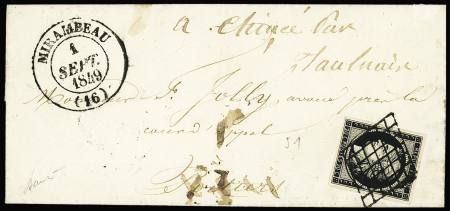 MIRAMBEAU
1
SEPT.
1849
(16)
à Chincé Par
Jaulnais
Monsieur F. Jolly, avoué près la
cour d'appel
à
Poitiers